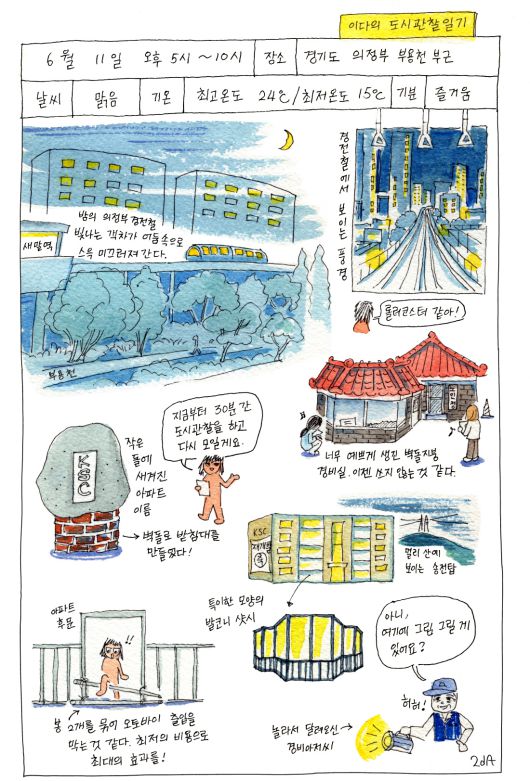 이다의 도시관찰일기
6월 11일 오후 5시~10시 장소 경기도 의정부 부용천 부근
날씨 맑음 기온 최고온도 24℃/최저온도 15℃ 기분 즐거움
밤의 의정부 경전철
빛나는 객차가 어둠속으로
스윽 미끄러져 간다.
새말역
부용천
경전철에서 보이는 풍경
롤러코스터 같아!
노인정
너무 예쁘게 생긴 벽돌지붕
경비실. 이젠 쓰지 않는 것 같다.
지금부터 30분간
도시관찰을 하고
다시 모일게요.
KSC
작은
돌에
새겨진
아파트
이름
→벽돌로 받침대를
만들었다!
KSC
재건축
멀리 산에
보이는 송전탑
특이한 모양의
발코니 샷시
아파트
후문
!!
봉 2개를 묶어 오토바이 출입을
막는것 같다. 최저의 비용으로
최대의 효과를!
아니,
여기에 그림 그릴 게
있어요?
허허!
놀라서 달려오신
경비아저씨
2dA